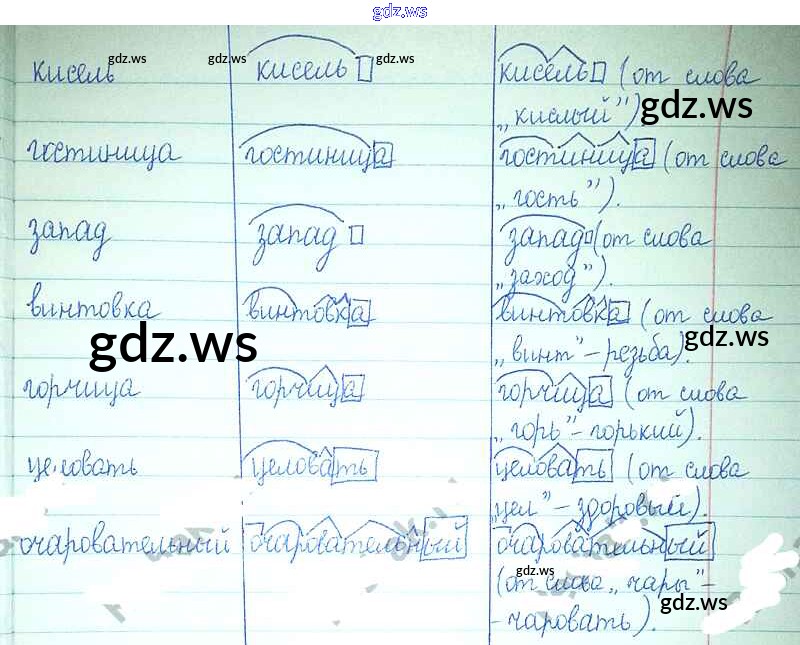 gdz.ws
кисель кисель кисель (от слова
gdz.ws gdz.ws gdz.ws
„кислый”)
гостиница гостиница гостиница (от слова
„гость”).
запад запад запад (от слова
„заход”).
винтовка винтовка винтовка (от слова
gdz.ws gdz.ws
„винт” – резьба).
горчица горчица горчица (от слова
„горь” – горький).
целовать целовать целовать (от слова
„цел” – здоровый).
очаровательный очаровательный очаровательный
gdz.ws
(от слова „чары” –
gdz.ws
– чаровать).